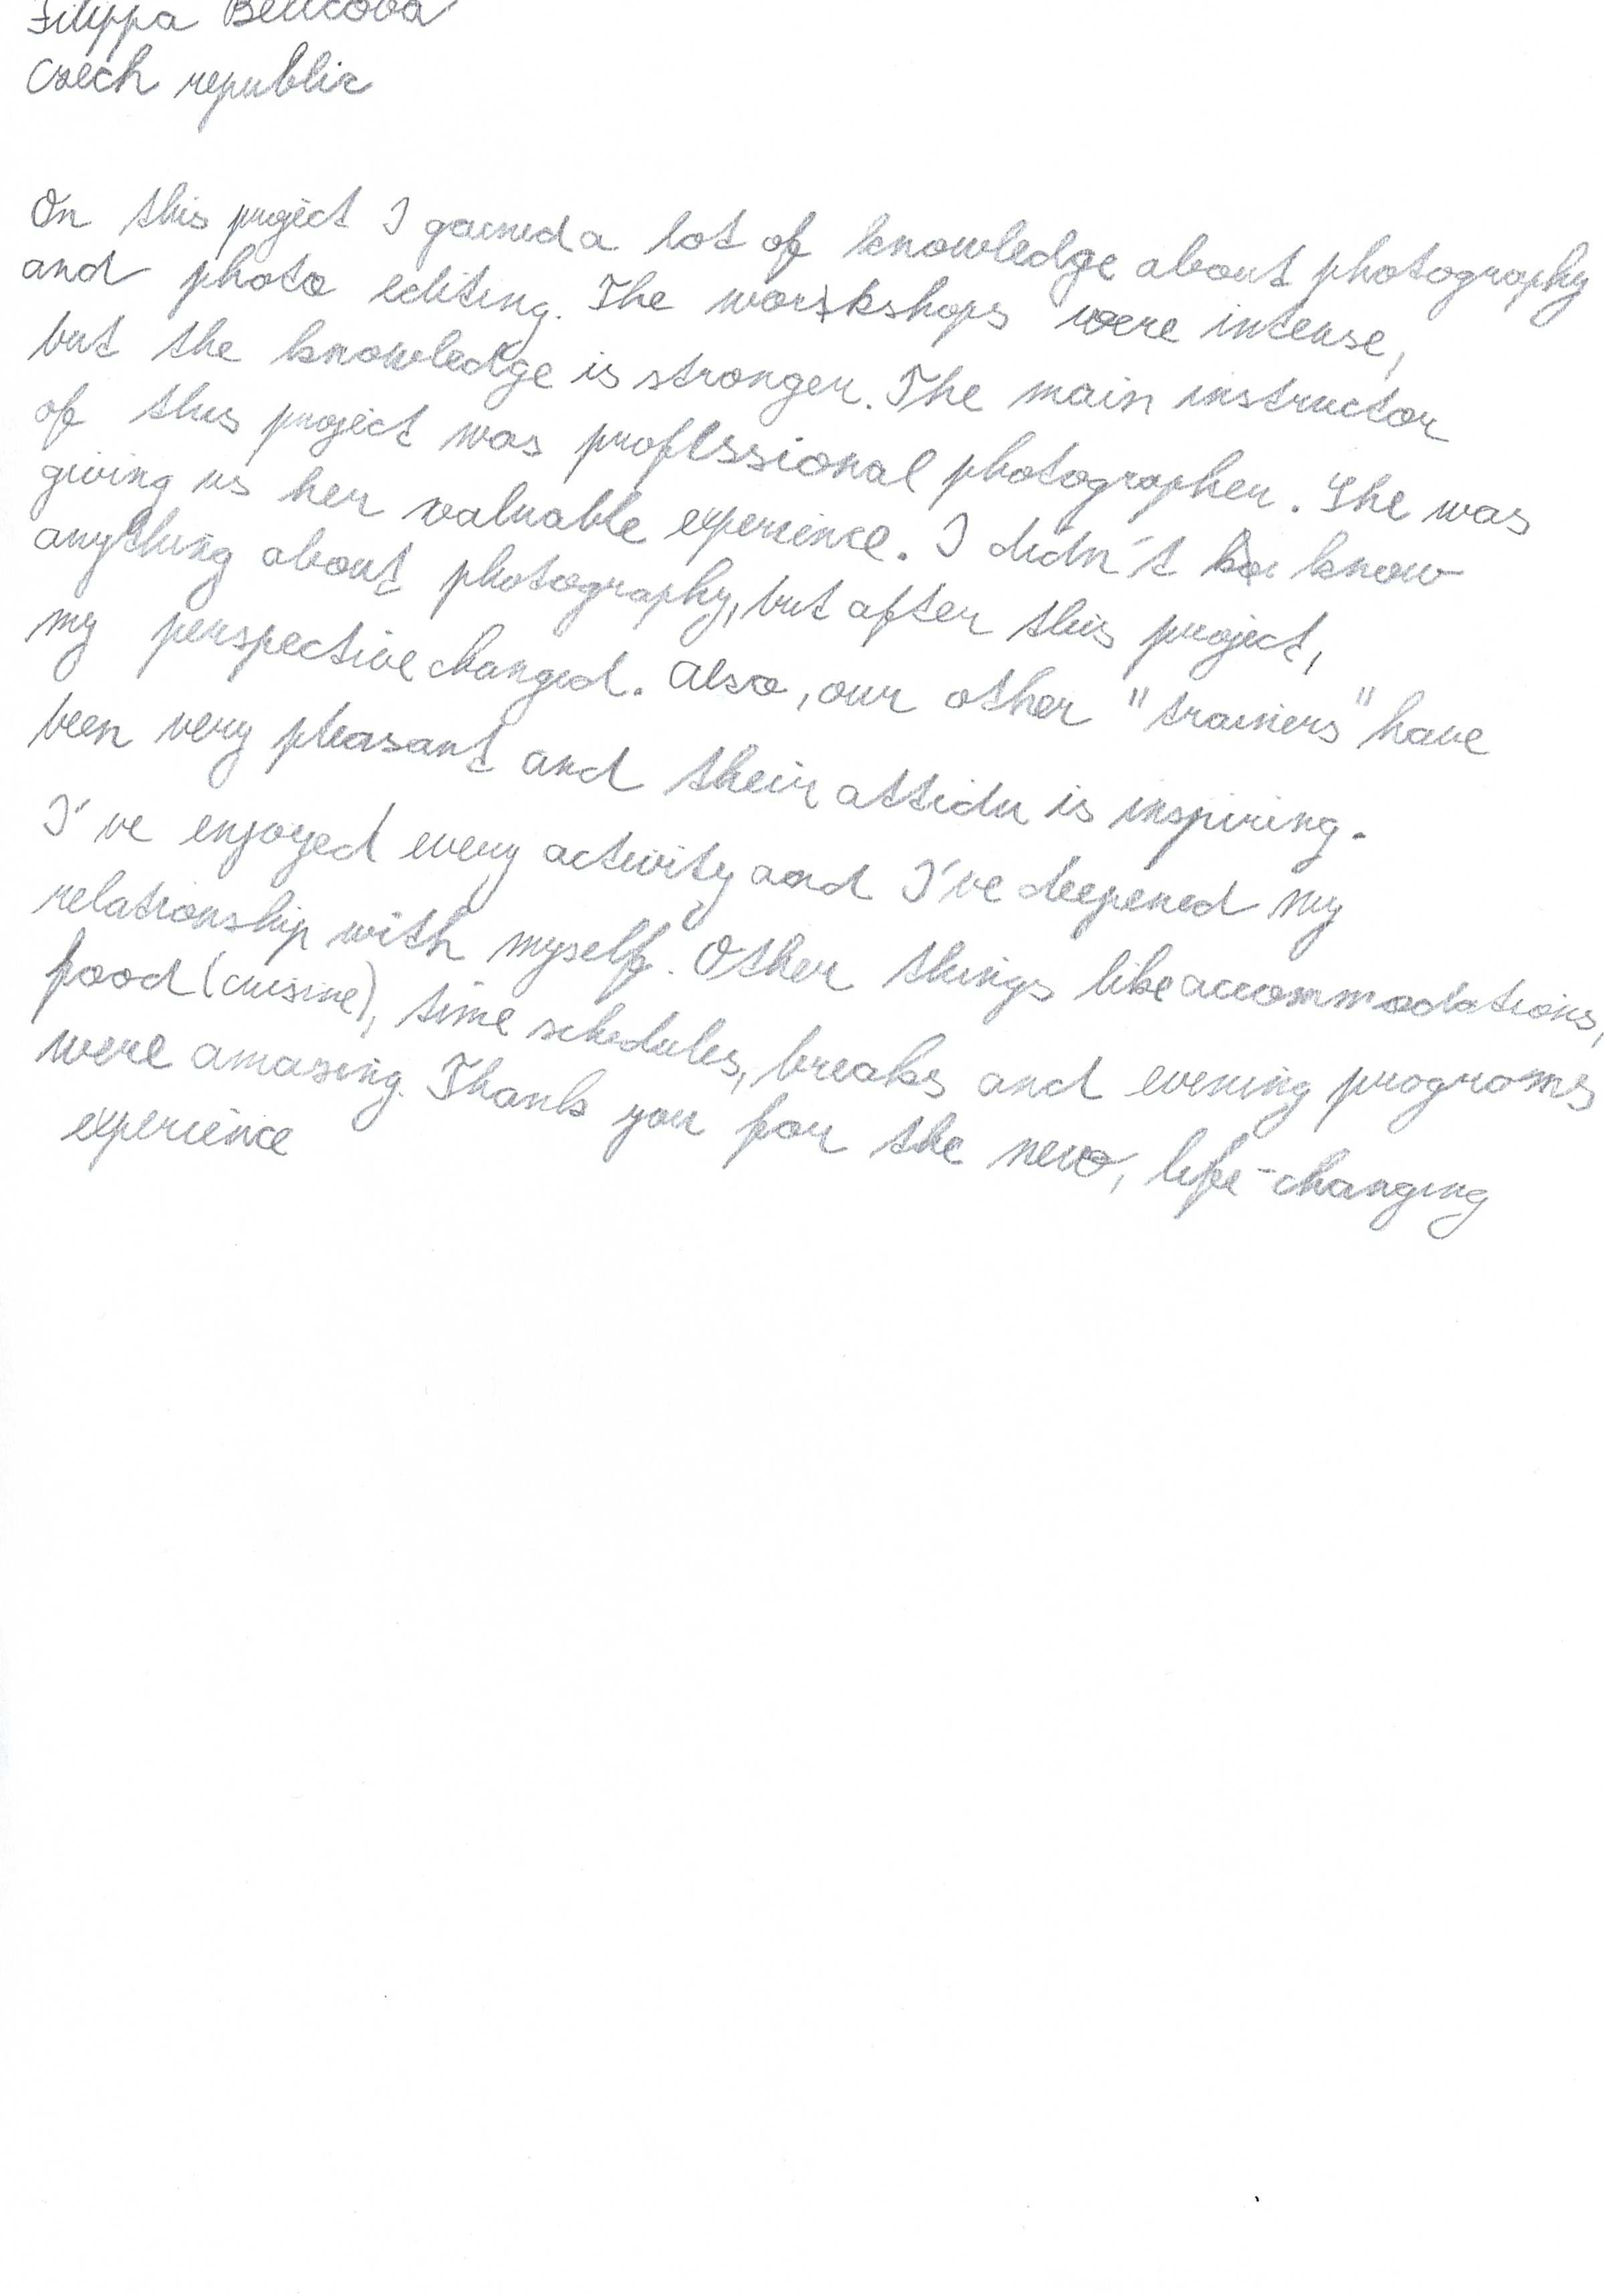 Filippa
Czech republic
On this project I gained a lot of knowledge about photography
and photo editing. The workshops were intense,
but the knowledge is stronger. The main instructor
of this project was professional photographer. She was
giving us her valuable experience. I didn't know
anything about photography, but after this project,
my perspective changed. Also, our other "trainers" have
been very pleasant and their attidu is inspiring.
I've enjoyed every activity and I've deepened my
relationship with myself. Other things like accommodations,
food (cuisine), time schedules, breaks and evening programs
were amazing. Thank you for the new, life-changing
experience